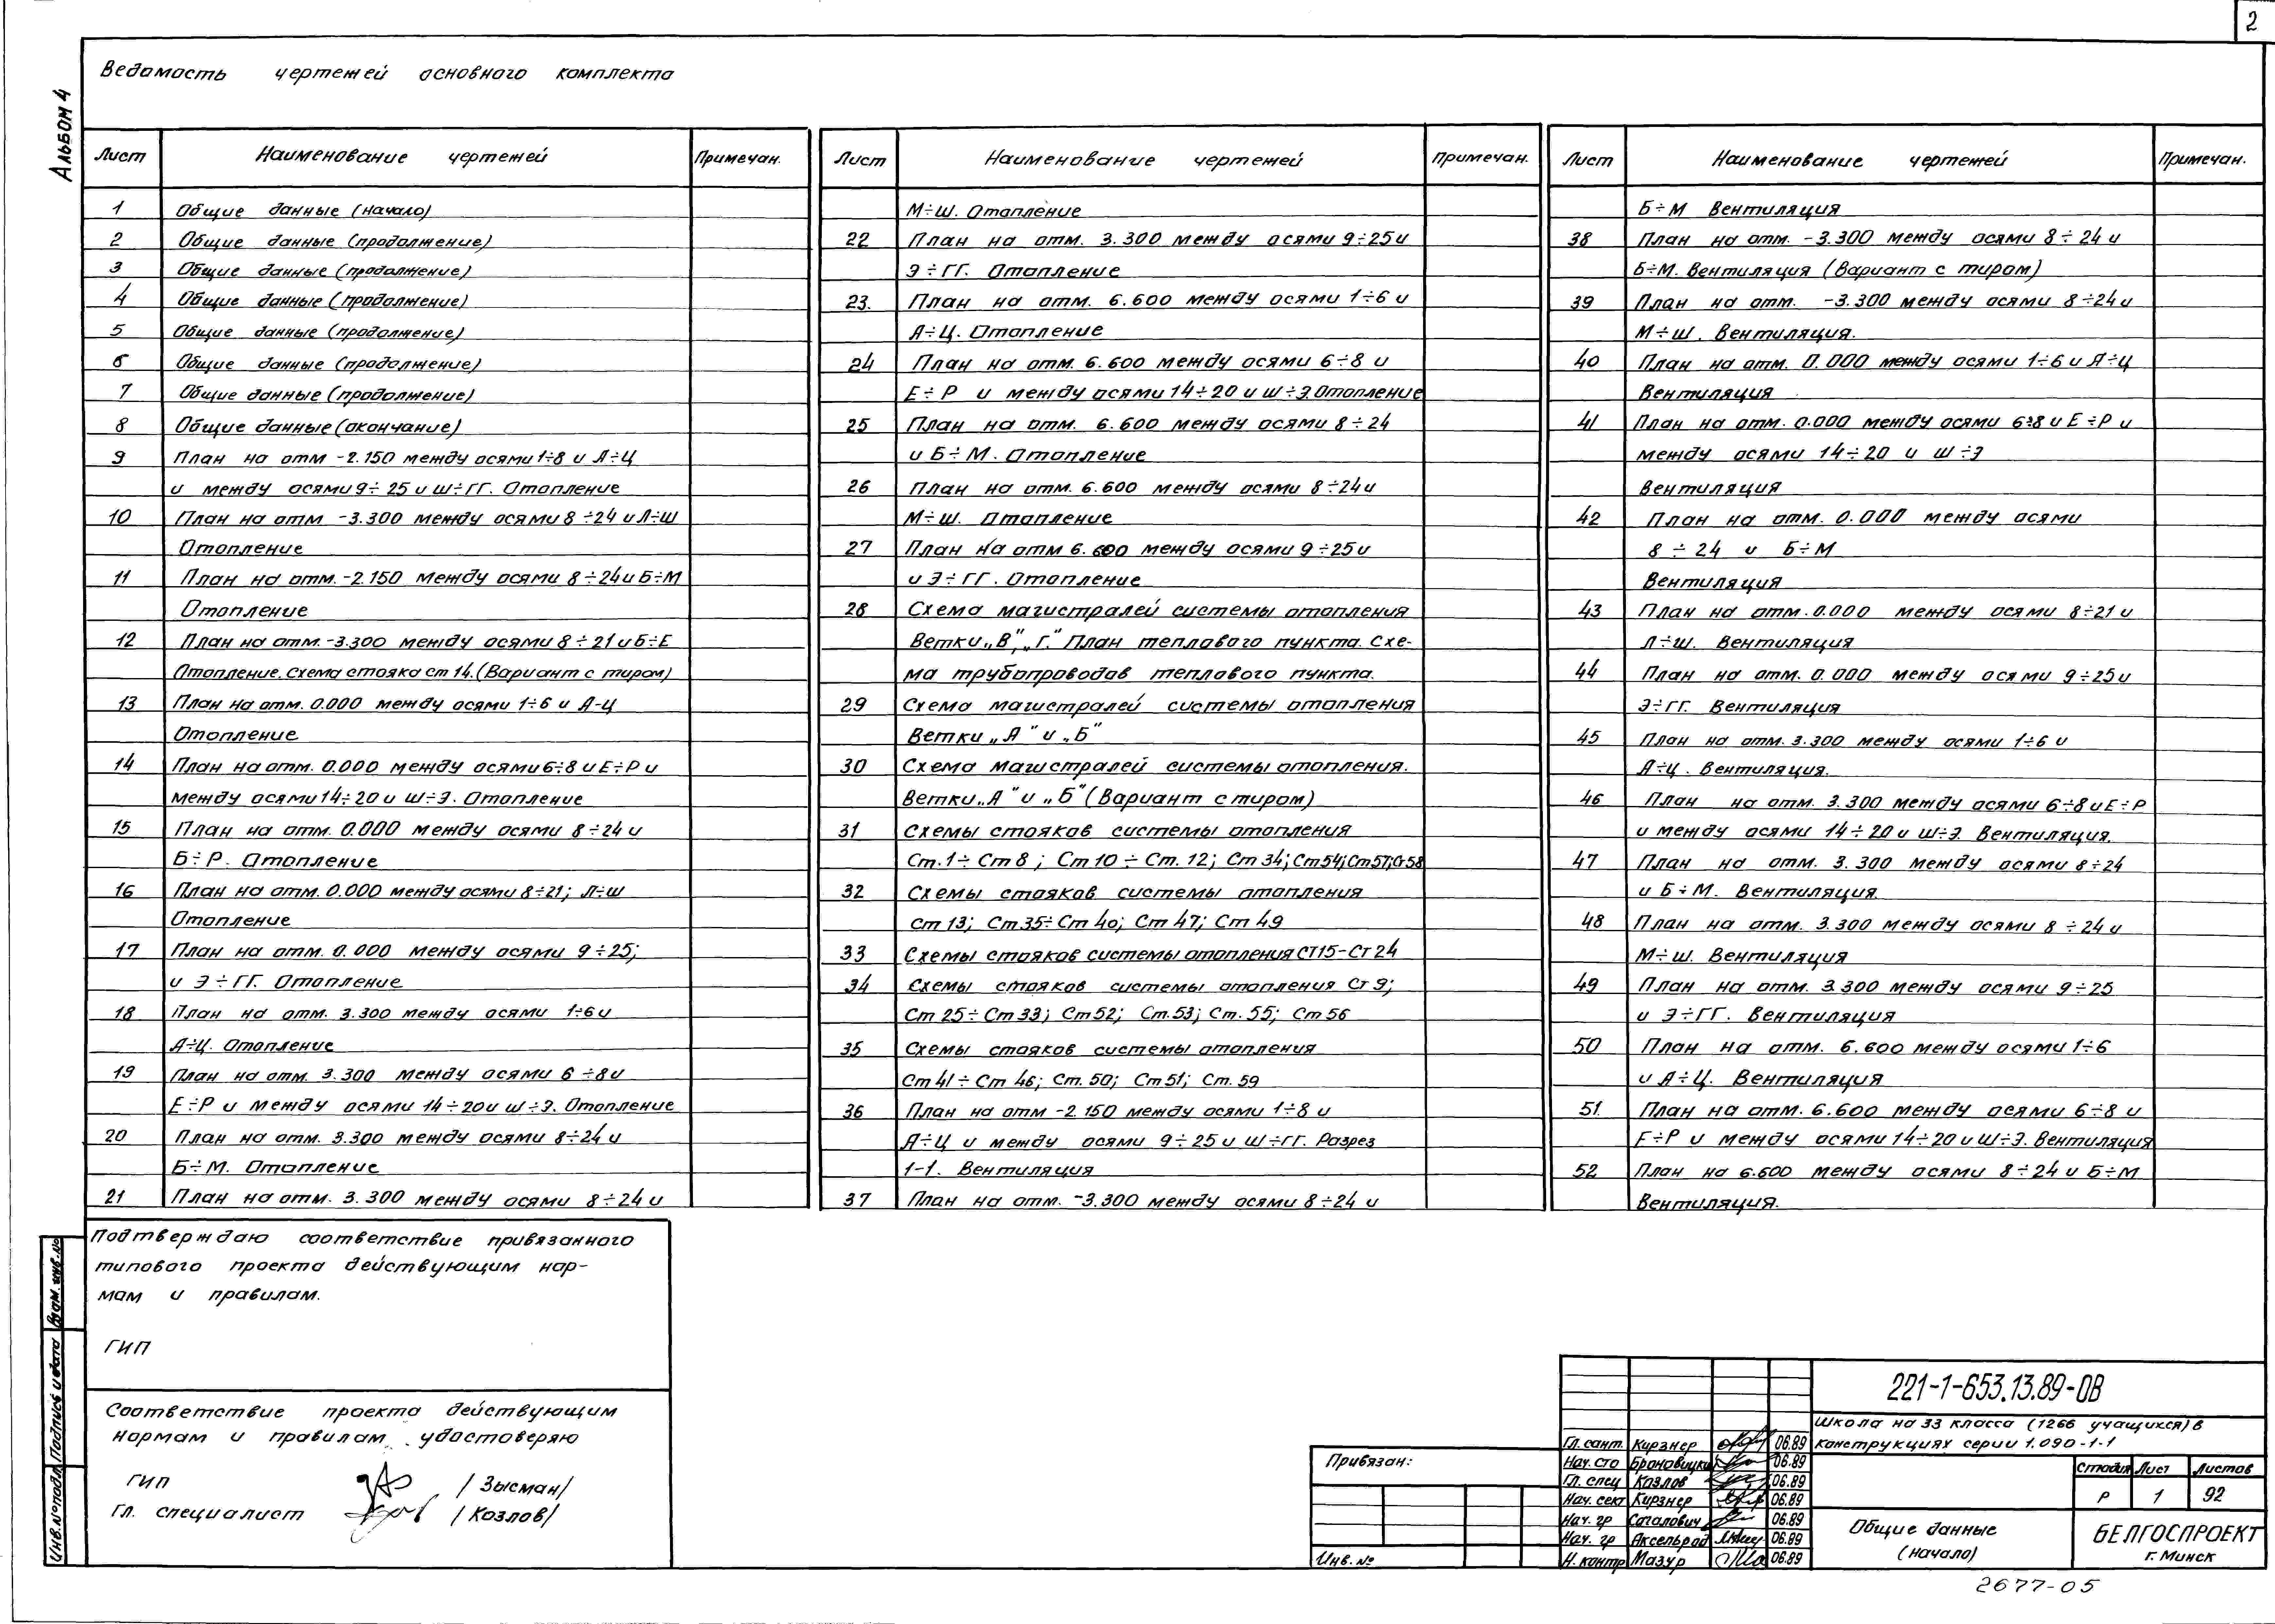 2
Альбом 4
Ведомость чертежей основного комплекта
Лист Наименование чертежей Примечан.
1 Общие данные (начало)
2 Общие данные (продолжение)
3 Общие данные (продолжение)
4 Общие данные (продолжение)
5 Общие данные (продолжение)
6 Общие данные (продолжение)
7 Общие данные (продолжение)
8 Общие данные (окончание)
9 План на отм -2.150 между осями 1÷8 и А÷Ц
и между осями 9÷25 и Ш÷ГГ. Отопление
10 План на отм -3.300 между осями 8÷24 и Л÷Ш
Отопление
11 План на отм. -2.150 между осями 8÷24 и Б÷М
Отопление
12 План на отм. -3.300 между осями 8÷21 и Б÷Е
Отопление. Схема стояка ст 14. (Вариант с тиром)
13 План на отм. 0.000 между осями 1÷6 и А-Ц
Отопление
14 План на отм. 0.000 между осями 6÷8 и Е÷Р и
между осями 14÷20 и Ш÷Э. Отопление
15 План на отм. 0.000 между осями 8÷24 и
Б÷Р. Отопление
16 План на отм. 0.000 между осями 8÷21; Л÷Ш
Отопление
17 План на отм. 0.000 между осями 9÷25;
и Э÷ГГ. Отопление
18 План на отм. 3.300 между осями 1÷6 и
А÷Ц. Отопление
19 План на отм. 3.300 между осями 6÷8 и
Е÷Р и между осями 14÷20 и Ш÷Э. Отопление
20 План на отм. 3.300 между осями 8÷24 и
Б÷М. Отопление
21 План на отм. 3.300 между осями 8÷24 и
Лист Наименование чертежей Примечан.
М÷Ш. Отопление
22 План на отм. 3.300 между осями 9÷25 и
Э÷ГГ. Отопление
23. План на отм. 6.600 между осями 1÷6 и
А÷Ц. Отопление
24 План на отм. 6.600 между осями 6÷8 и
Е÷Р и между осями 14÷20 и Ш÷Э. Отопление
25 План на отм. 6.600 между осями 8÷24
и Б÷М. Отопление
26 План на отм. 6.600 между осями 8÷24 и
М÷Ш. Отопление
27 План на отм 6.600 между осями 9÷25 и
и Э÷ГГ. Отопление
28 Схема магистралей системы отопления
Ветки „В", „Г." План теплового пункта. Схе-
ма трубопроводов теплового пункта.
29 Схема магистралей системы отопления
Ветки „А" и „Б"
30 Схема магистралей системы отопления.
Ветки „А" и „Б" (Вариант с тиром)
31 Схемы стояков системы отопления
Ст. 1÷Ст 8; Ст 10÷Ст. 12; Ст 34; Ст 54; Ст 57; Ст 58
32 Схемы стояков системы отопления
Ст 13; Ст 35÷Ст 40; Ст 47; Ст 49
33 Схемы стояков системы отопления Ст 15-Ст 24
34 Схемы стояков системы отопления Ст 9;
Ст 25÷Ст 33; Ст 52; Ст. 53; Ст. 55; Ст 56
35 Схемы стояков системы отопления
Ст 41÷Ст 46; Ст. 50; Ст 51; Ст. 59
36 План на отм -2.150 между осями 1÷8 и
А÷Ц и между осями 9÷25 и Ш÷ГГ. Разрез
1-1. Вентиляция
37 План на отм. -3.300 между осями 8÷24 и
Лист Наименование чертежей Примечан.
Б÷М Вентиляция
38 План на отм. -3.300 между осями 8÷24 и
Б÷М. Вентиляция (Вариант с тиром)
39 План на отм. -3.300 между осями 8÷24 и
М÷Ш. Вентиляция.
40 План на отм. 0.000 между осями 1÷6 и А÷Ц
Вентиляция
41 План на отм. 0.000 между осями 6÷8 и Е÷Р и
между осями 14÷20 и Ш÷Э
Вентиляция
42 План на отм. 0.000 между осями
8÷24 и Б÷М
Вентиляция
43 План на отм. 0.000 между осями 8÷21 и
Л÷Ш. Вентиляция
44 План на отм. 0.000 между осями 9÷25 и
Э÷ГГ. Вентиляция
45 План на отм. 3.300 между осями 1÷6 и
А÷Ц. Вентиляция.
46 План на отм. 3.300 между осями 6÷8 и Е÷Р
и между осями 14÷20 и Ш÷Э. Вентиляция.
47 План на отм. 3.300 между осями 8÷24
и Б÷М. Вентиляция
48 План на отм. 3.300 между осями 8÷24 и
М÷Ш. Вентиляция
49 План на отм. 3.300 между осями 9÷25
и Э÷ГГ. Вентиляция
50 План на отм. 6.600 между осями 1÷6
и А÷Ц. Вентиляция
51. План на отм. 6.600 между осями 6÷8 и
Е÷Р и между осями 14÷20 и Ш÷Э. Вентиляция
52 План на 6.600 между осями 8÷24 и Б÷М
Вентиляция.
Подтверждаю соответствие привязанного
типового проекта действующим нор-
мам и правилам.
ГИП
Соответствие проекта действующим
нормам и правилам удостоверяю
ГИП /Зысман/
Гл. специалист /Козлов/
Инв.№ подл. Подпись и дата Взам. инв.№
Привязан:
Инв. №
Гл. сант. Кирзнер 06.89
Нач. СТО Броновицки 06.89
Гл. спец Козлов 06.89
Нач. сект Кирзнер 06.89
Нач. гр Сагалович 06.89
Нач. гр Аксельрад 06.89
Н. контр Мазур 06.89
221-1-653.13.89-ОВ
Школа на 33 класса (1266 учащихся) в
конструкциях серии 1.090-1-1
Стадия Лист Листов
Р 1 92
Общие данные
(начало)
БЕЛГОСПРОЕКТ
г. Минск
2677-05